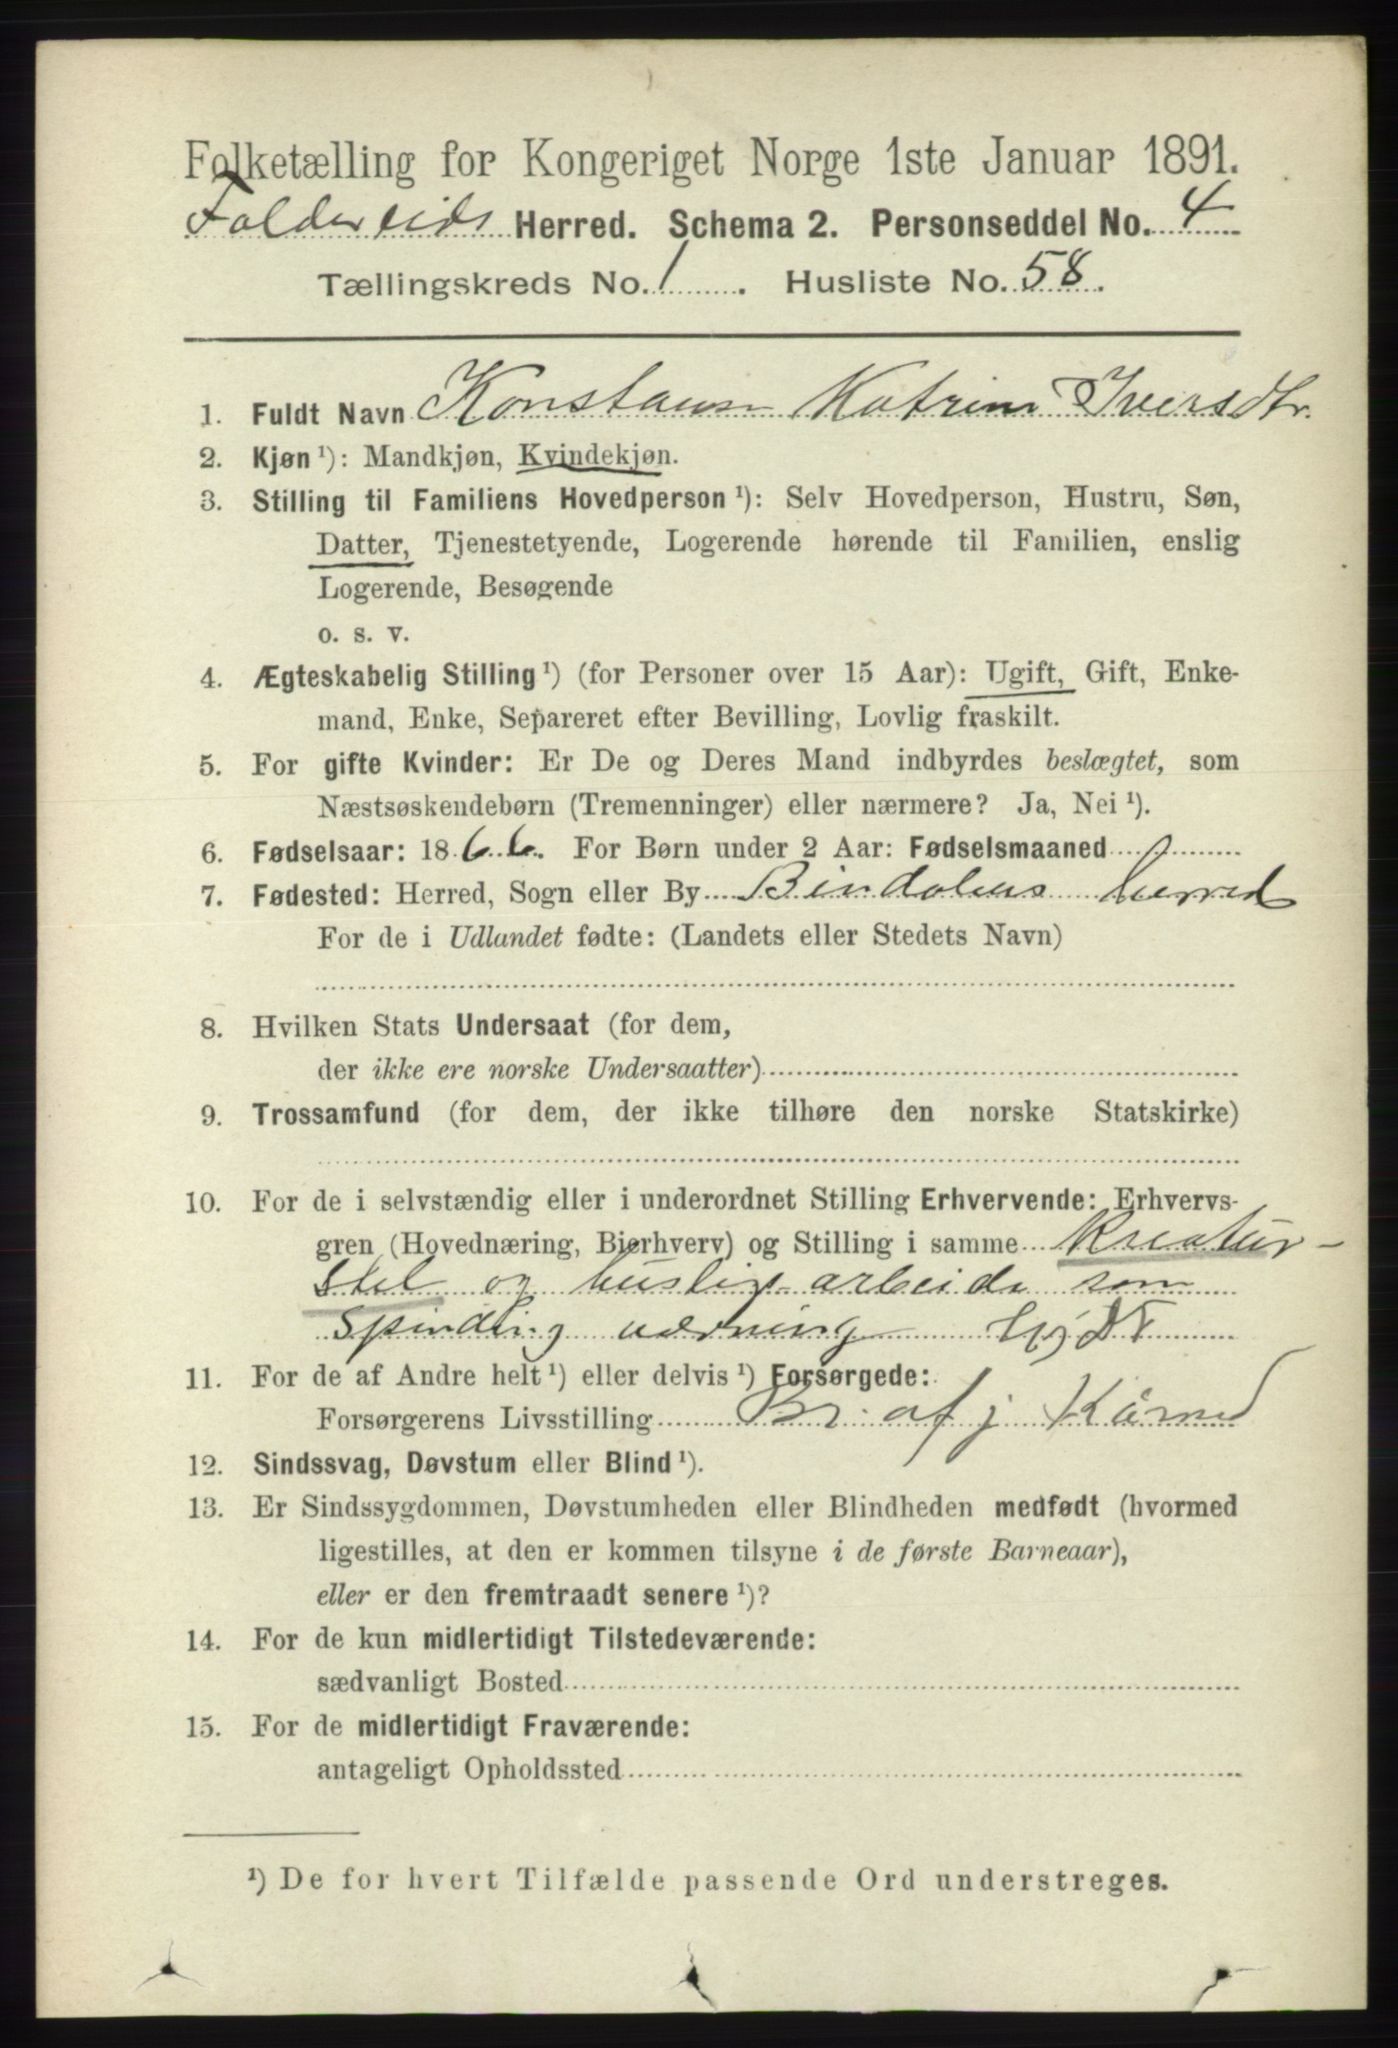 Folketælling for Kongeriget Norge 1ste Januar 1891.
Foldereids Herred. Schema 2. Personseddel No. 4
Tællingskreds No. 1. Husliste No. 58.
1. Fuldt Navn Konstanse Katrine Iversdtr.
2. Kjøn ¹): Mandkjøn, Kvindekjøn.
3. Stilling til Familiens Hovedperson ¹): Selv Hovedperson, Hustru, Søn,
Datter, Tjenestetyende, Logerende hørende til Familien, enslig
Logerende, Besøgende
o. s. v.
4. Ægteskabelig Stilling ¹) (for Personer over 15 Aar): Ugift, Gift, Enke-
mand, Enke, Separeret efter Bevilling, Lovlig fraskilt.
5. For gifte Kvinder: Er De og Deres Mand indbyrdes beslægtet, som
Næstsøskendebørn (Tremenninger) eller nærmere? Ja, Nei ¹).
6. Fødselsaar: 1866. For Børn under 2 Aar: Fødselsmaaned
7. Fødested: Herred, Sogn eller By Bindalens herred
For de i Udlandet fødte: (Landets eller Stedets Navn)
8. Hvilken Stats Undersaat (for dem,
der ikke ere norske Undersaatter)
9. Trossamfund (for dem, der ikke tilhøre den norske Statskirke)
10. For de i selvstændig eller i underordnet Stilling Erhvervende: Erhvervs-
gren (Hovednæring, Bierhverv) og Stilling i samme Kreatur-
stel og huslig arbeide som
spinding vævning
11. For de af Andre helt ¹) eller delvis ¹) Forsørgede:
Forsørgerens Livsstilling af j
12. Sindssvag, Døvstum eller Blind ¹).
13. Er Sindssygdommen, Døvstumheden eller Blindheden medfødt (hvormed
ligestilles, at den er kommen tilsyne i de første Barneaar),
eller er den fremtraadt senere ¹)?
14. For de kun midlertidigt Tilstedeværende:
sædvanligt Bosted
15. For de midlertidigt Fraværende:
antageligt Opholdssted
¹) De for hvert Tilfælde passende Ord understreges.